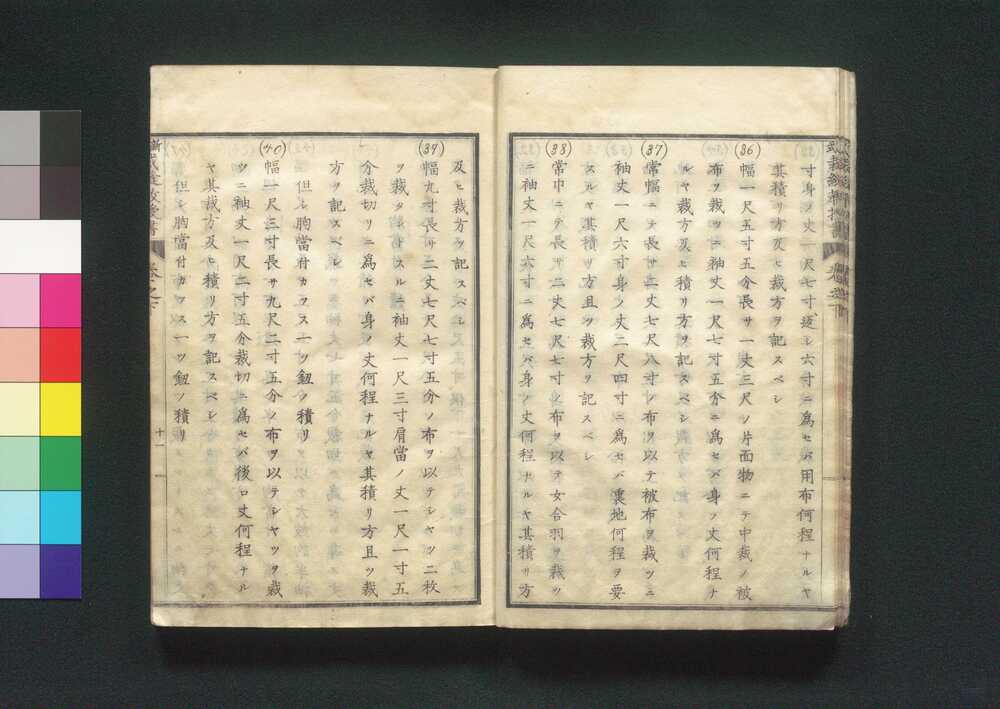 寸身ノ丈一尺七寸返シ六寸ニ爲セバ用布何程ナルヤ
其積リ方及ヒ裁方ヲ記スベシ
(36)
幅一尺五寸五分長サ一丈三尺ノ片面物ニテ中裁ノ被
布ヲ裁ツニ袖丈一尺七寸五分ニ爲セバ身ノ丈何程ナ
ルヤ裁方及ヒ積リ方ヲ記スベシ
(37)
常幅ニテ長サ二丈七尺八寸ノ布ヲ以テ被布ヲ裁ツニ
袖丈一尺六寸身ノ丈二尺四寸ニ爲セバ裏地何程ヲ要
スルヤ其積リ方且ツ裁方ヲ記スベシ
(38)
常巾ニテ長サ二丈七尺七寸ノ布ヲ以テ女合羽ヲ裁ツ
ニ袖丈一尺六寸ニ爲セバ身ノ丈何程ナルヤ其積リ方
及ヒ裁方ヲ記スベシ
(39)
幅九寸長サ二丈七尺七寸五分ノ布ヲ以テシヤツ二枚
ヲ裁タントスルニ袖丈一尺三寸肩當ノ丈一尺一寸五
分裁切リニ爲セバ身ノ丈何程ナルヤ其積リ方且ツ裁
方ヲ記スベシ
但シ胸當付カフス一ツ釦ノ積リ
(40)
幅一尺三寸長サ九尺二寸五分ノ布ヲ以テシヤツヲ裁
ツニ袖丈一尺二寸五分裁切ニ爲セバ後ロ丈何程ナル
ヤ其裁方及ヒ積リ方ヲ記スベシ
但シ胸當付カフス一ツ釦ノ積リ
十一